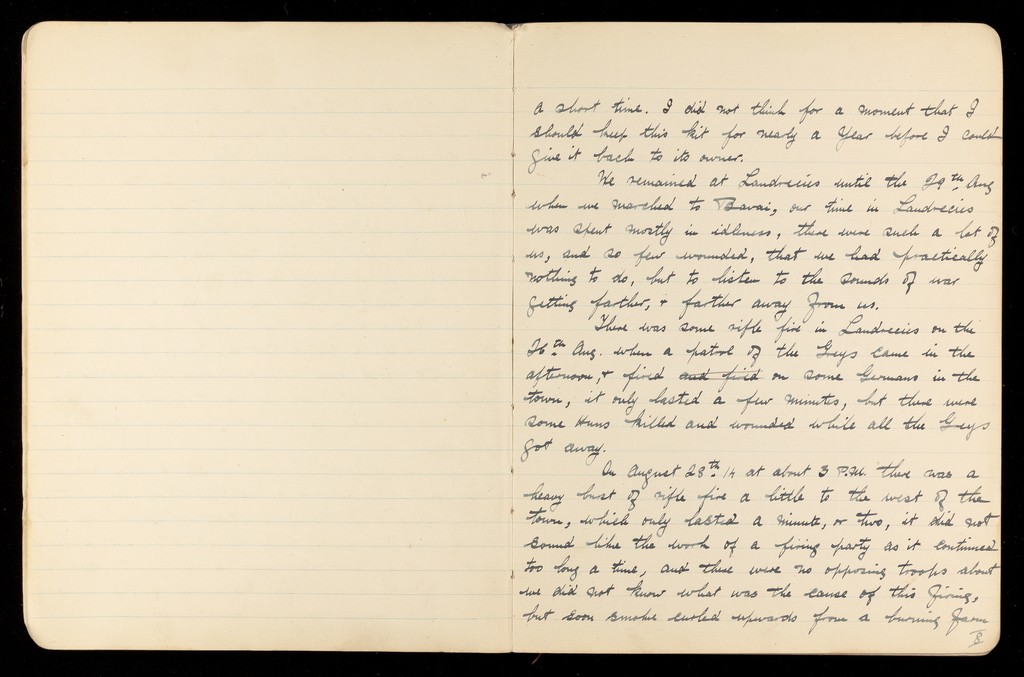 a short time. I did not think for a moment that I
should keep this kit for nearly a Year before I could
give it back to its owner.
We remained at Landrecies until the 29th Aug
when we marched to Bavai, our time in Landrecies
was spent mostly in idleness, there were such a lot of
us, and so few wounded, that we had practically
nothing to do, but to listen to the sounds of war
getting farther, + farther away from us.
There was some rifle fire in Landrecies on the
26th Aug. when a patrol of the Greys came in the
afternoon, + fired and fired on some Germans in the
town, it only lasted a few minutes, but there were
some Huns killed and wounded while all the Greys
got away.
On August 28th 14 at about 3 P.M. there was a
heavy burst of rifle fire a little to the west of the
town, which only lasted a minute, or two, it did not
sound like the work of a firing party as it continued
too long a time, and there were no opposing troops about
we did not know what was the cause of this firing,
but soon smoke curled upwards from a burning farm